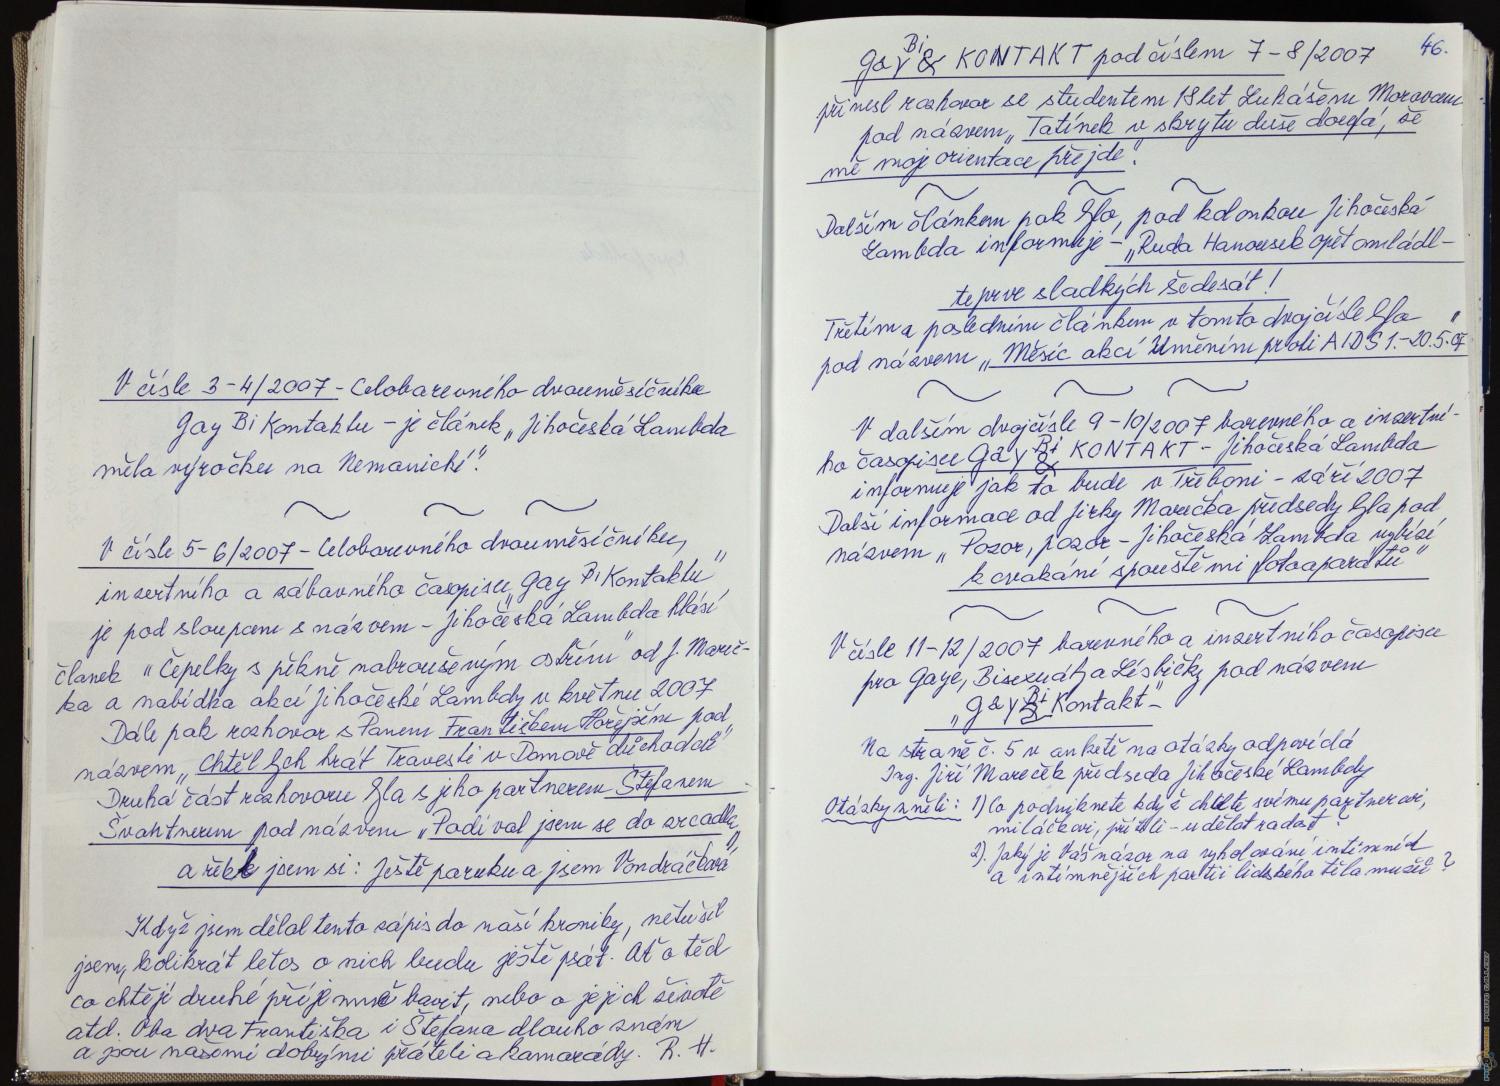 V čísle 3-4/2007 - Celobarevného dvouměsíčníku
Gay Bi Kontaktu - je článek „Jihočeská Lambda
měla výročku na Nemanické".
V čísle 5-6/2007 - Celobarevného dvouměsíčníku,
inzertního a zábavného časopisu „Gay Bi Kontaktu"
je pod sloupcem s názvem - Jihočeská Lambda hlásí
članek "Čepelky s pěkně nabroušeným ostřím" od J. Mareč-
ka a nabídka akcí Jihočeské Lambdy v květnu 2007
Dále pak rozhovor s Panem Františkem Hořejším pod
názvem „Chtěl bych hrát Travesti v Domově důchodců"
Druhá část rozhovoru byla s jeho partnerem Štefanem
Švahtnerem pod názvem „Podíval jsem se do zrcadla,
a řekl jsem si: Ještě paruku a jsem Vondráčková"
Když jsem dělal tento zápis do naší kroniky, netušil
jsem, kolikrát letos o nich budu ještě psát. Ať o těd
co chtějí druhé příjemně bavit, nebo o jejich životě
atd. Oba dva Františka i Štefana dlouho znám
a jsou našimi dobrými přáteli a kamarády. R. H.
46.
Gay Bi & KONTAKT pod číslem 7-8/2007
přinesl rozhovor se studentem 18 let Lukášem Moravcem
pod názvem „Tatínek v skrytu duše doufá, že
mě moje orientace přejde".
Dalším článkem pak byla, pod kolonkou Jihočeská
Lambda informuje - „Ruda Hanousek opět omládl -
teprve sladkých šedesát!
Třetím a posledním článkem v tomto dvojčísle byla
pod názvem „Měsíc akcí Uměním proti AIDS 1.-20.5.07"
V dalším dvojčísle 9-10/2007 barevného a inzertní-
ho časopisu Gay Bi & KONTAKT - Jihočeská Lambda
informuje jak to bude v Třeboni - září 2007
Další informace od Jirky Marečka předsedy byla pod
názvem „Pozor, pozor - Jihočeská Lambda vybízí
k cvakání spouštěmi fotoaparátů"
V čísle 11-12/2007 barevného a inzertního časopisu
pro Gaye, Bisexuály a Lésbičky pod názvem
„Gay Bi & Kontakt" -
Na straně č. 5 v anketě na otázky odpovídá
Ing. Jiří Mareček předseda Jihočeské Lambdy
Otázky zněli: 1) Co podniknete když chcete svému partnerovi,
miláčkovi, příteli - udělat radost?
2). Jaký je Váš názor na vyholování intimních
a intimnějších partií lidského těla mužů?